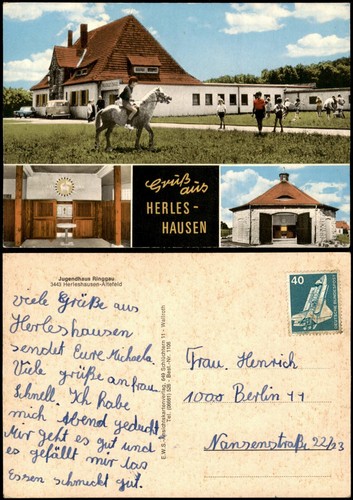 Grüß aus
HERLES-
HAUSEN
Jugendhaus Ringgau
3443 Herleshausen-Altefeld
40
viele Grüße aus
Herleshausen
sendet Eure Michaela.
Viele grüße an frau
Schnell. Ich habe
mich Abend geduscht
Mir geht es gut und
es gefällt mir das
Essen schmeckt gut.
Frau. Henrich
1000 Berlin 44
Nansenstraße 22/23